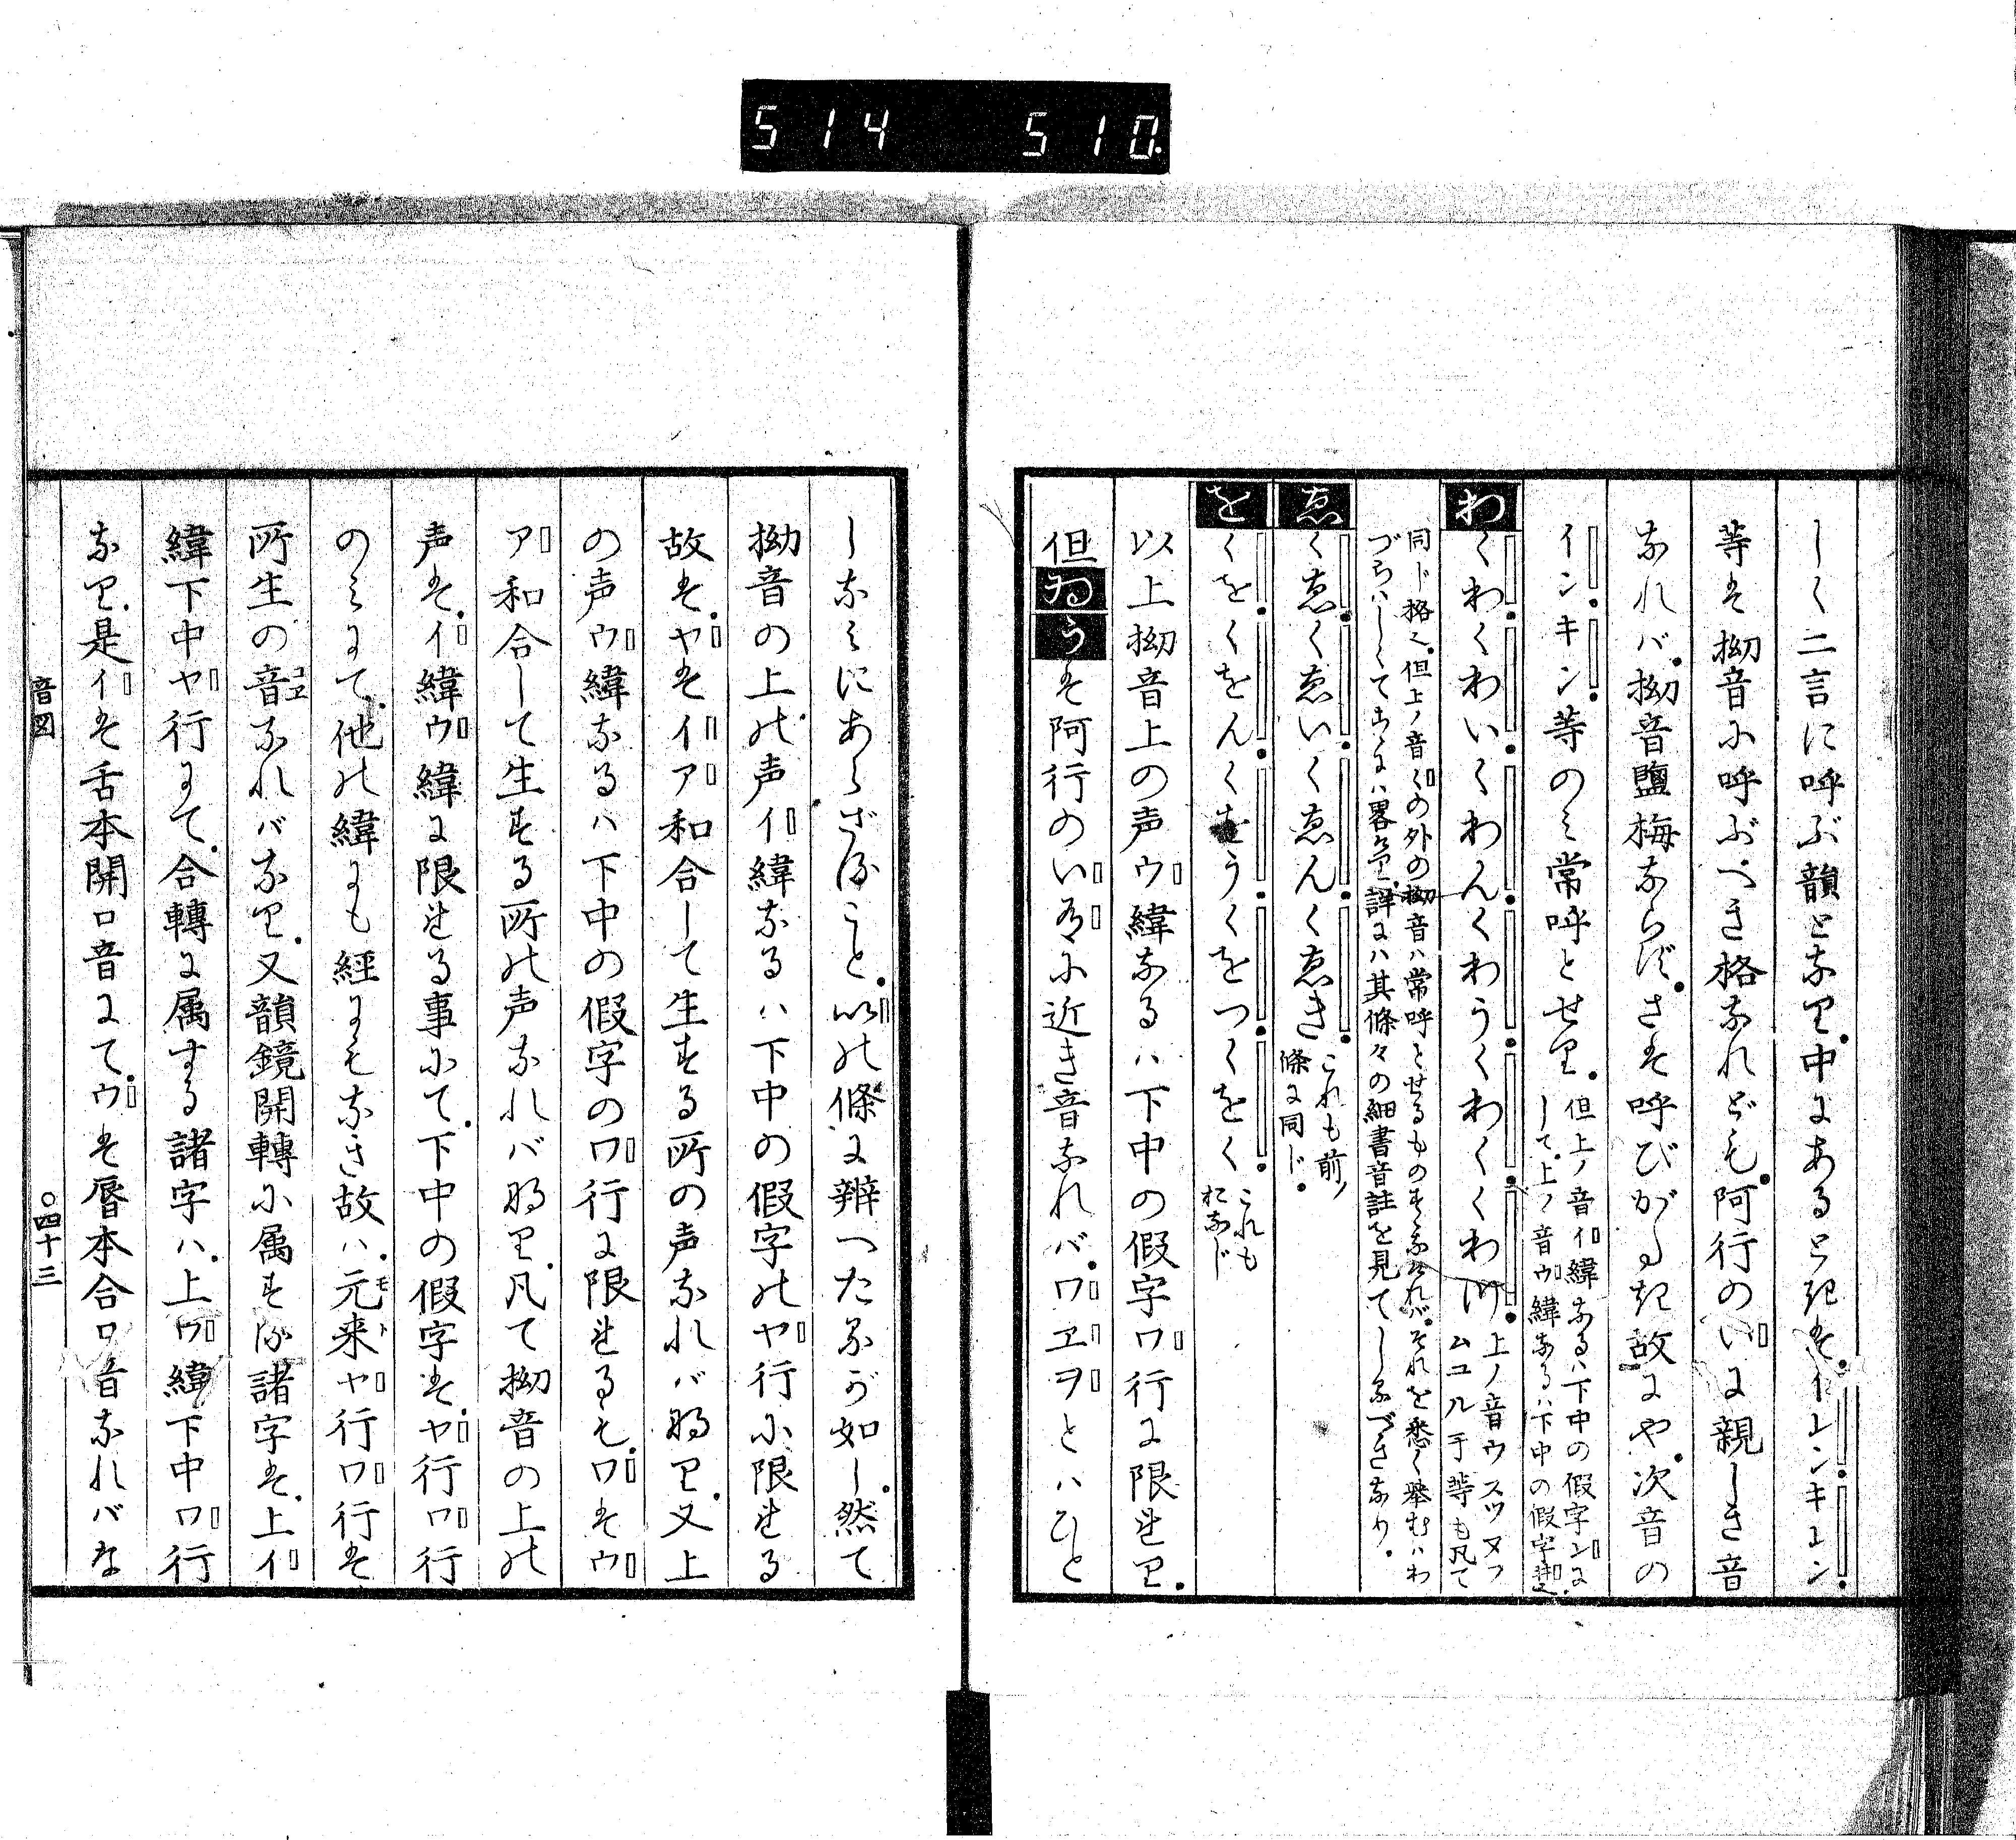 514 510.
しく二言に呼ぶ韻となり。中にあるときは。イヒンキヒン。
等は拗音に呼ぶべき格なれども。阿行のいに親しき音
なれば。拗音鹽梅ならず。さは呼びがたき故にや。次音の
イン。キン。等のミ常呼とせり。
但上ノ音イ緯なるハ下中の假字ンに
して。上ノ音ウ緯なるハ下中の假字
わ くわ。くわい。くわん。くわう。くわく。くわ
上ノ音ウスツヌフ
ムユル于等も凡て
同じ格也。但上ノ音くの外の拗音ハ常呼とせるものすくなければ。それを悉く舉むハわ
づらハしくてこゝにハ畧きつ。詳にハ其條々の細書音註を見てしるべきなり。
ゑ くゑ。くゑい。くゑん。くゑき。
これも前ノ
條に同じ。
を くを。くをん。くをう。くをつ。くをく。
これも
おなじ
以上拗音上の声ウ緯なるハ下中の假字ワ行に限れり。
但ゐうは阿行のいうに近き音なれバ。ワヱヲとハひと
しなミにあらざること。以の條に辨へたるが如し。然て
拗音の上の声イ緯なるハ下中の假字のヤ行に限れる
故は。ヤはイア和合して生ずる所の声なれバ也。又上
の声ウ緯なるハ下中の假字のワ行に限れるも。ワはウ
ア和合して生ずる所の声なれバなり。凡て拗音の上の
声は。イ緯ウ緯に限れる事にて。下中の假字は。ヤ行ワ行
のミにて。他の緯にも經にもなき故ハ。元来モトヤ行ワ行は
所生の音コヱなれバなり。又韻鏡開轉に属する諸字は。上イ
緯下中ヤ行にて。合轉に属する諸字ハ。上ウ緯下中ワ行
なり。是イは舌本開口音にて。ウは唇本合口音なれバな
音図
〇四十三